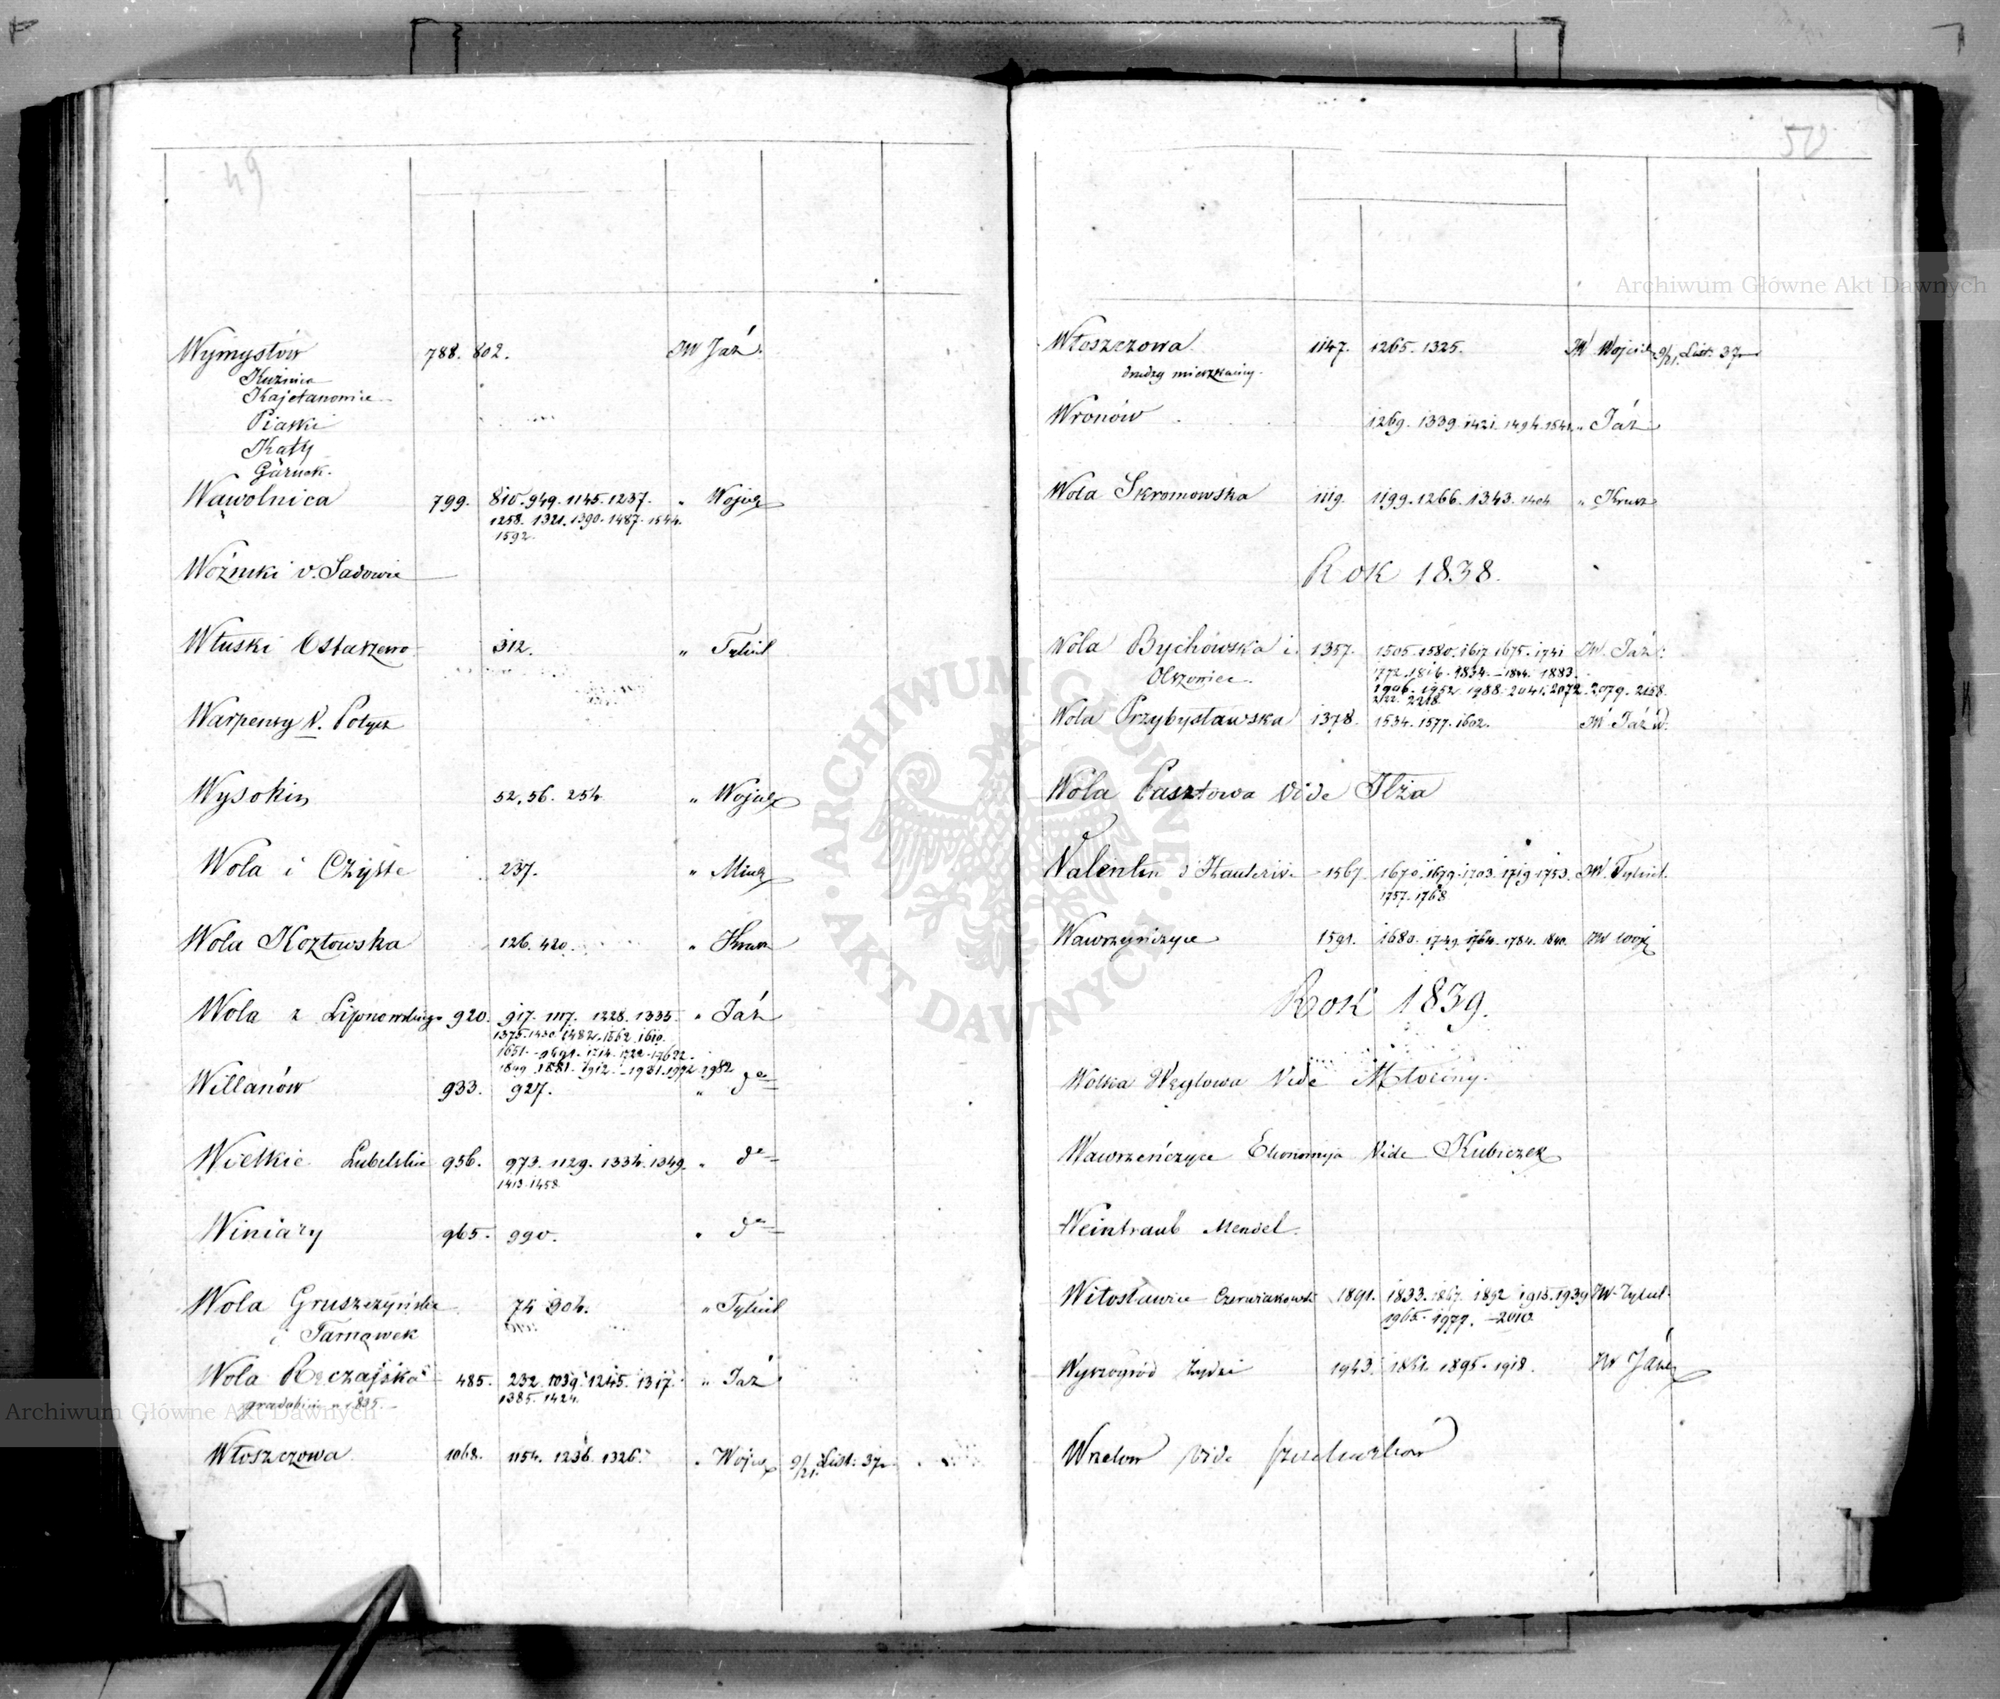 49
Wymysłów 788. 802. JW Jaź.
Kuźnica
Kajetanowice
Piaski
Kąty
Gärnek.
Wąwolnica 799. 810. 949. 1145. 1237. "
1258. 1321. 1390. 1487. 1544.
1592.
Woźniki v. Sadowie
Włuski Ostarzewo 312. "
Warpensy V. Potycz
Wysokin 52. 56. 254 "
Wola i Czyste 237. "
Wola Kozłowska 126. 420. "
Wola z Lipnowskiego 920. 917. 1117. 1228. 1335. " Jáź
1375. 1430. 1482. 1562. 1610.
1651. 1691. 1714. 1722. 1762.
1849. 1881. 1912. 1931. 1982
Willanów 933. 927. " do
Wielkie Lubelskie 956. 973. 1129. 1334. 1349. " do
1413. 1458
Winiary 965. 990. " do
Wola Gruszczyńska 74 304. "
i Tarnawek
Wola Ręczajska 485. 232. 1039. 1245. 1317. " Jáź
1385. 1424.
Włoszczowa 1068. 1154. 1236. 1326. " 9/21. List. 37
50
Włoszczowa 1147. 1265. 1325. JW 9/21. List. 37
drudzy mieszkańcy.
Wronów 1269. 1339. 1421. 1494. 1541. " Jáź
Wola Skromowska 1119. 1199. 1266. 1343. 1404 "
Rok 1838.
Wola Bychowska i 1357. 1505. 1580. 1617. 1675. 1741 JW. Jáź:
Olszowiec. 1772. 1816. 1834. 1844. 1883.
1906. 1952. 1988. 2041. 2072. 2079. 2158.
2122. 2218.
Wola Przybysławska 1378. 1534. 1577. 1602. JW Jáźw.
Wola Pasztowa Vide Jłża
Valentin d'Hauterive 1567. 1670. 1679. 1703. 1719. 1753. JW.
1757. 1768
Wawrzyńczyce 1591. 1680. 1749. 1764. 1784. 1840. JW
Rok 1839.
Wolka Węglowa Vide Młociny.
Wawrzeńczyce Ekonomija Vide Kubiczek
Weintraub Mendel.
Witosławice Czerwiakowski 1891. 1833. 1867. 1892 1915. 1939 JW
1965. 1977. 2010
Wyszogród Żydzi 1943. 1861. 1895. 1918. JW Jáźw
Vide
Archiwum Główne Akt Dawnych
Archiwum Główne Akt Dawnych
ARCHIWUM GŁÓWNE AKT DAWNYCH